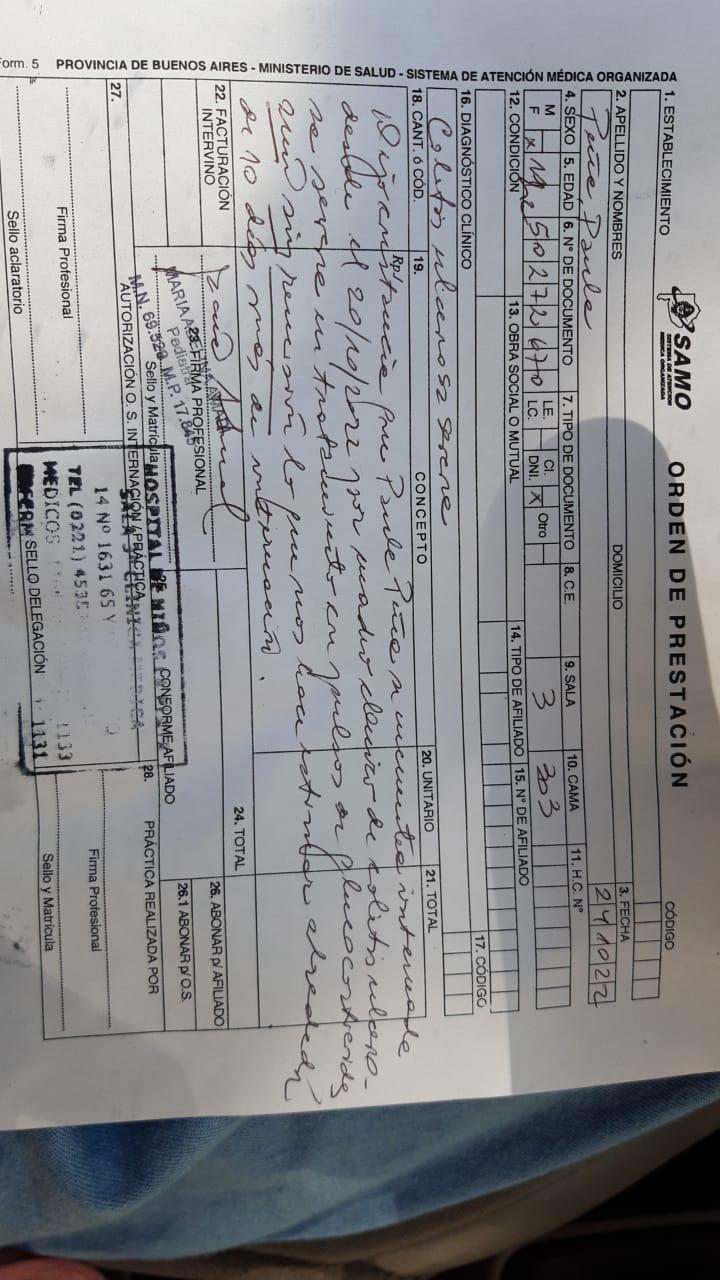 Form. 5 PROVINCIA DE BUENOS AIRES - MINISTERIO DE SALUD - SISTEMA DE ATENCIÓN MÉDICA ORGANIZADA
SAMO
SISTEMA DE ATENCION
MEDICA ORGANIZADA
ORDEN DE PRESTACIÓN
1. ESTABLECIMIENTO
CÓDIGO
2. APELLIDO Y NOMBRES
DOMICILIO
3. FECHA
Paula
24 10 22
4. SEXO 5. EDAD 6. N° DE DOCUMENTO 7. TIPO DE DOCUMENTO 8. C.E. 9. SALA 10. CAMA 11. H.C. N°
M
F x 50272670 LE. LC. CI. DNI. x Otro 3 303
12. CONDICIÓN 13. OBRA SOCIAL O MUTUAL 14. TIPO DE AFILIADO 15. N° DE AFILIADO
16. DIAGNÓSTICO CLÍNICO
17. CÓDIGO
Colitis ulcerosa severa
18. CANT. ó CÓD. 19. CONCEPTO 20. UNITARIO 21. TOTAL
Rp/
Dejo constancia que Paula se encuentra internada
desde el 20/10/2022 por cuadro clínico de colitis ulcero-
sa severa en tratamiento con pulsos de glucocorticoides
aún sin remisión lo que nos hace estimar alrededor
de 10 días más de internación.
22. FACTURACIÓN
INTERVINO
23. FIRMA PROFESIONAL
Sello y Matrícula
24. TOTAL
26. ABONAR p/ AFILIADO
26.1 ABONAR p/ O.S.
Pediatra
M.N. 69.529 M.P. 17.845
25. CONFORME AFILIADO
27.
AUTORIZACIÓN O. S. INTERNACIÓN / PRÁCTICA
28. PRÁCTICA REALIZADA POR
HOSPITAL DE NIÑOS
SALA 3 CLINICA MEDICA
14 N° 1631 65 Y
TEL (0221)
MEDICOS
1133
1131
Firma Profesional
Sello aclaratorio
SELLO DELEGACIÓN
Firma Profesional
Sello y Matrícula